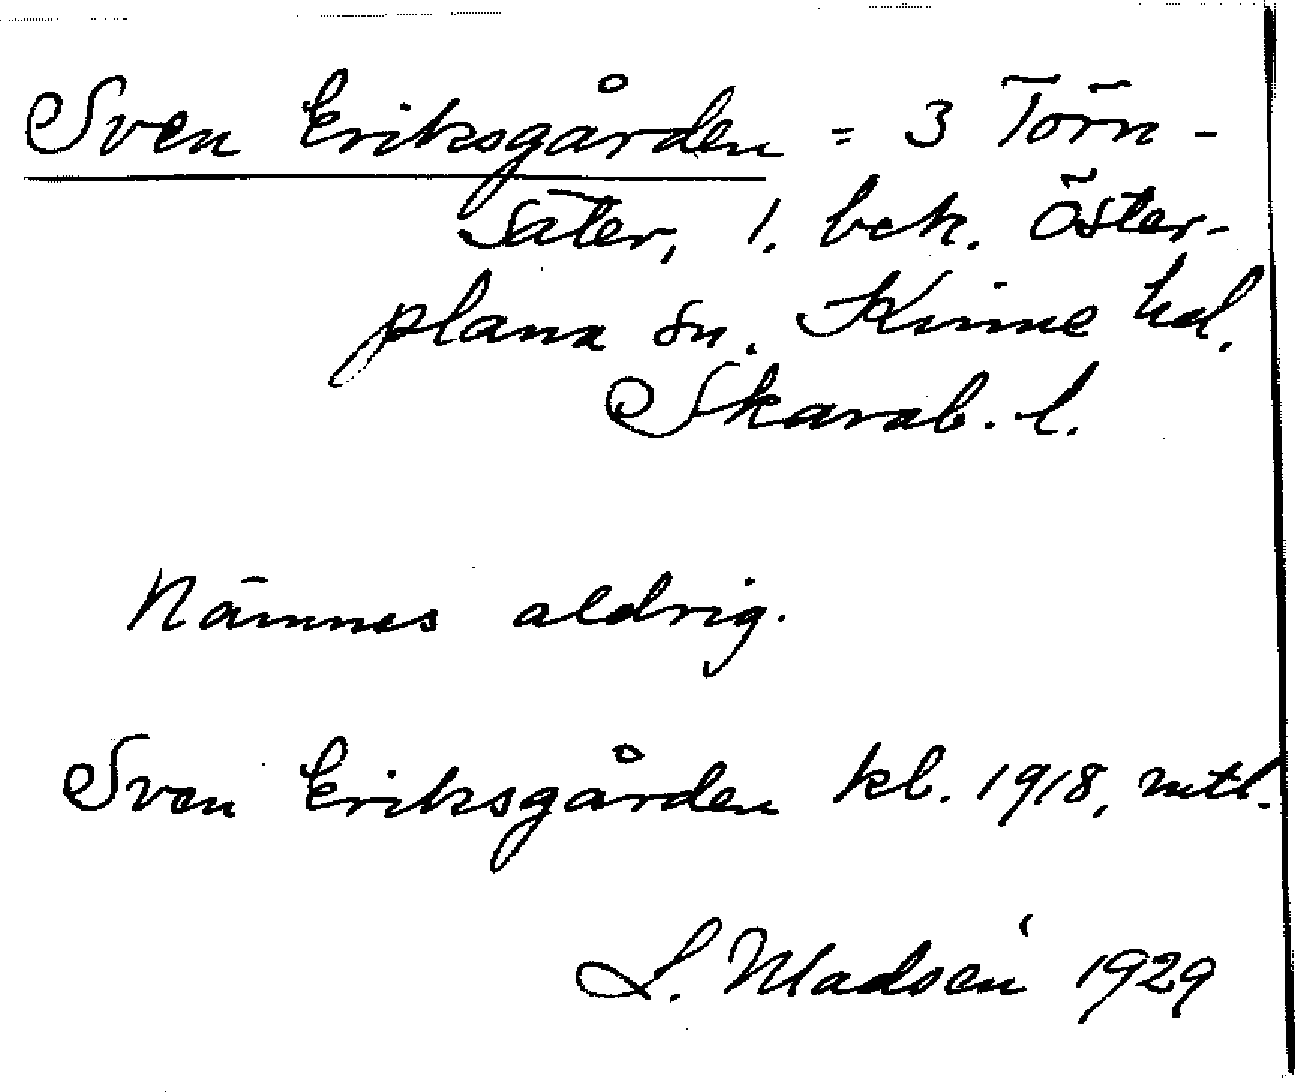 Sven Eriksgården = 3 Törn-
säter, 1. bek. Öster-
plana sn. Kinne hd.
Skarab. l.
Nämnes aldrig.
Sven Eriksgården kb. 1918, mtl.
L. Madsén 1929